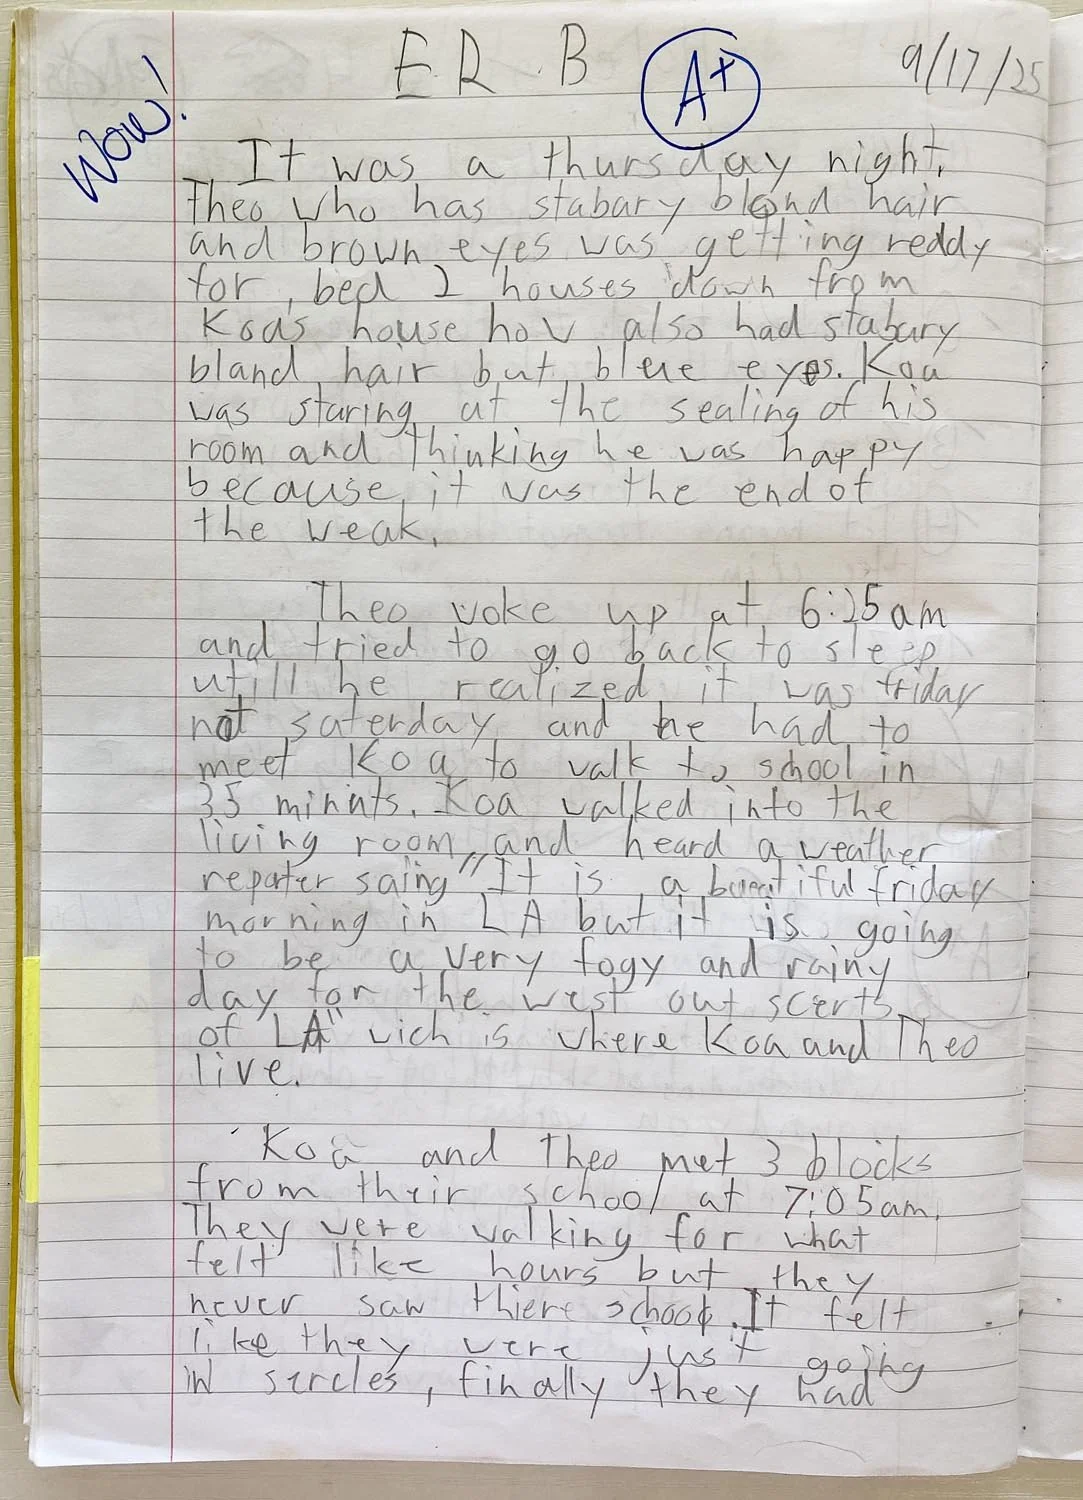 Wow!
E.R.B
A+
9/17/25
It was a thursday night.
Theo who has stabary bland hair
and brown eyes was getting reddy
for, bed 2 houses down from
Koa's house hov also had stabary
bland hair but blue eyes. Koa
was staring at the sealing of his
room and thinking he was happy
because it was the end of
the weak.
Theo woke up at 6:25am
and tried to go back to sleep
utill he realized it was friday
not saterday and he had to
meet Koa to walk to school in
35 minints. Koa walked into the
living room, and heard a weather
reporter saing "It is a bueatiful friday
morning in LA but it is going
to be a very fogy and rainy
day for the west out scerts
of LA" vich is where Koa and Theo
live.
Koa and Theo met 3 blocks
from their school at 7:05am.
They were walking for what
felt like hours but they
never saw thiere school. It felt
like they were just going
in sercles, finally they had